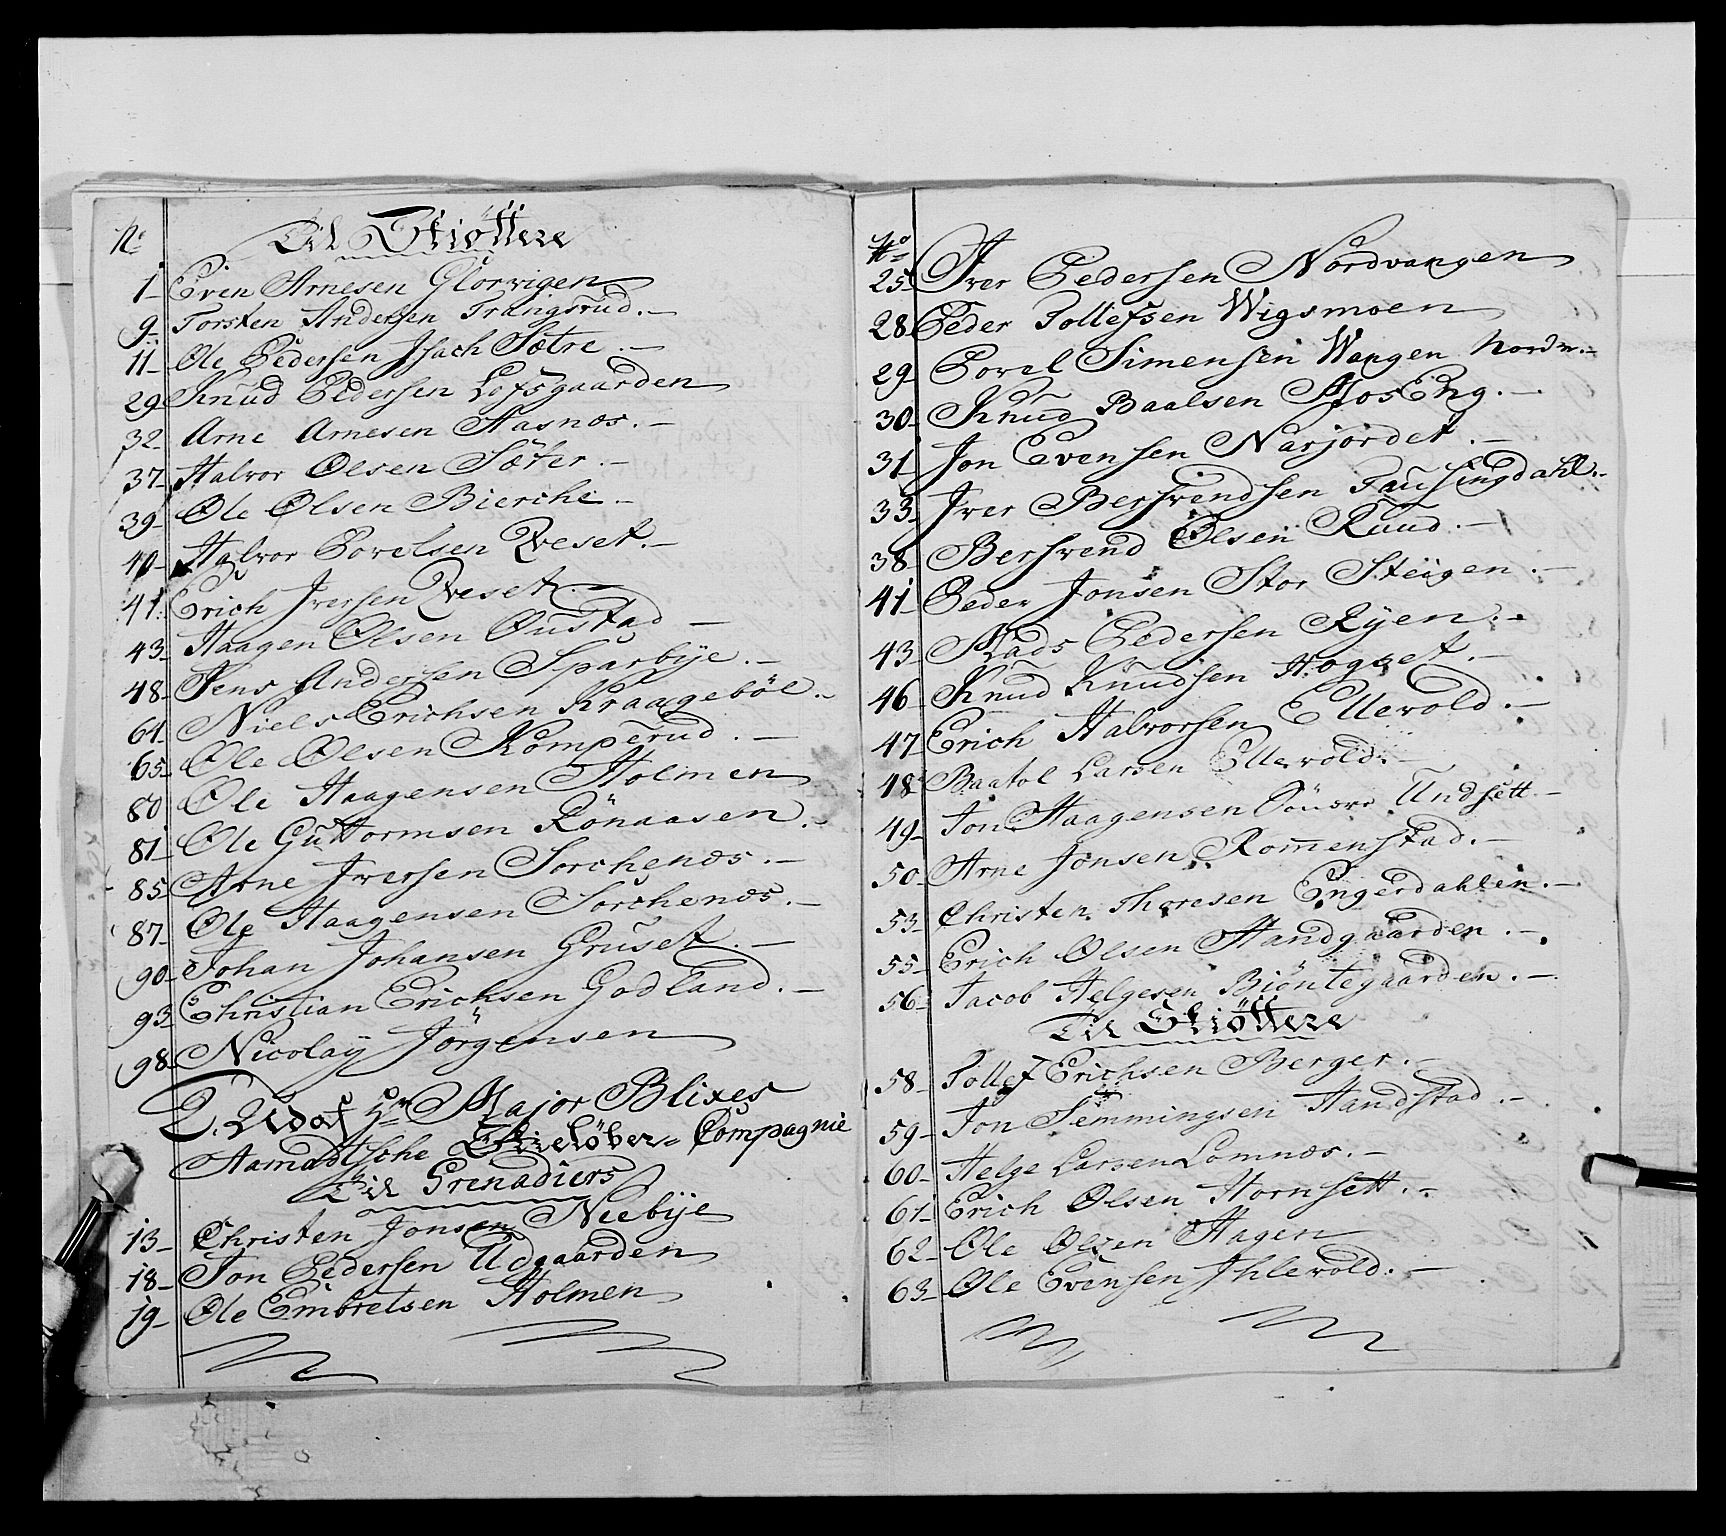 No Til Skiøttere
1 Even Arnesen Glorvigen
9 Torsten Andersen Trangsrud.
11 Ole Pedersen Isach Sætre.
29 Knud Pedersen Lofsgaarden
32 Arne Arnesen Aasnæs.
37 Halvor Olsen Sæter.
39 Ole Olsen Bierche
40 Halvor Povelsen Qveset.
41 Erich Iversen Qveset.
43 Haagen Olsen Oustad
48 Jens Andersen Sparbÿe.
61 Niels Erichsen Kraagebøl.
65 Ole Olsen Komperud.
80 Ole Haagensen Holmen
81 Ole Guttormsen Rönaasen.
85 Arne Iversen Sorchenæs.
87 Ole Haagensen Sorchenæs.
90 Johan Johansen Gruset.
93 Christian Erichsen Godland.
98 Nicolaÿ Jörgensen
2. Udaf Hr Major Blixes
Aamodtsche Skieløber Compagnie
Til Grenadiers
13 Christen Jonsen Neebÿe
18 Jon Pedersen Udgaarden
19 Ole Embretsen Holmen
No
25 Iver Pedersen Nordvangen
28 Peder Tollefsen Wigsmoen
29 Povel Simensen Wangen Nordre
30 Knud Baalsen MosEng.
31 Jon Evensen Narjordet.
33 Iver Bersvendsen Tausingdahl.
38 Bersvend Olsen Ruud.
41 Peder Jonsen Stor Steÿgen.
43 Mads Pedersen Rÿen.
46 Knud Knudsen Hogset.
47 Erich Halvorsen Ellevold.
48 Baatol Larsen Ellevold.
49 Jon Haagensen Søndre Undsett.
50 Arne Jonsen Romenstad.
53 Christen Thoresen Engerdahlen.
55 Erich Olsen Handgaarden.
56 Jacob Helgesen Biöntegaarden.
Til Skiøttere
58 Tollef Erichsen Berger.
59 Jon Semmingsen Handstad.
60 Helge Larsen Lomnæs.
61 Erich Olsen Hornsett.
62 Ole Olsen Hagen
63 Ole Evensen Ihlevold.